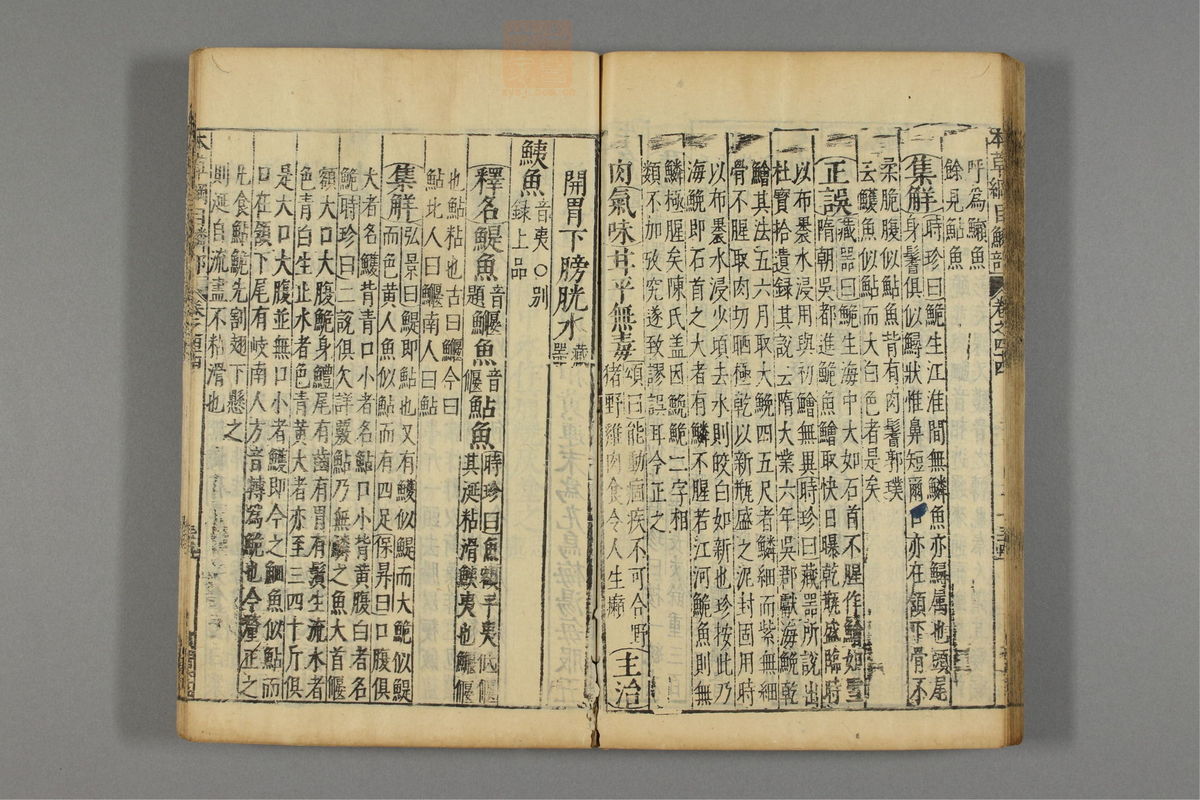 本草綱目鱗部 卷之四十四
呼為鱯魚
餘見鮎魚
集解時珍曰鮠生江淮間無鱗魚亦鱘属也頭尾
身鬐俱似鱘狀惟鼻短爾口亦在頷下骨不
柔脆腹似鮎魚背有肉鬐郭璞
云鱯魚似鮎而大白色者是矣
正誤藏器曰鮠生海中大如石首不腥作鱠如雪
隋朝吳都進鮠魚鱠取快日曝乾瓶盛臨時
以布裹水浸用與初鱠無異時珍曰藏器所說出
杜寶拾遺録其説云隋大業六年吳郡獻海鮸乾
鱠其法五六月取大鮸四五尺者鱗細而紫無細
骨不腥取肉切晒極乾以新瓶盛之泥封固用時
以布裹水浸少頃去水則皎白如新也珍按此乃
海鮸即石首之大者有鱗不腥若江河鮠魚則無
鱗極腥矣陳氏盖因鮸鮠二字相
類不加攷究遂致謬誤耳今正之
肉氣味甘平無毒頌曰能動痼疾不可合野
猪野雞肉食令人生癩主治
開胃下膀胱水藏器
鮧魚音夷○别
録上品
釋名鯷魚音題鰋魚音偃鮎魚時珍曰魚額平夷低偃
其涎粘滑鮧夷也鰋偃
也鮎粘也古曰鰋今曰
鮎北人曰鰋南人曰鮎
集解弘景曰鯷即鮎也又有鱯似鯷而大鮠似鯷
而色黄人魚似鮎而有四足保昇曰口腹俱
大者名鱯背青口小者名鮎口小背黄腹白者名
鮠時珍曰二説俱欠詳覈鮎乃無鱗之魚大首偃
額大口大腹鮠身鱧尾有齒有胃有鬚生流水者
色青白生止水者色青黄大者亦至三四十斤俱
是大口大腹並無口小者鱯即今之鮰魚似鮎而
口在頷下尾有岐南人方音轉為鮠也今釐正之
凡食鮎鮠先割翅下懸之
則涎自流盡不粘滑也
本草綱目鱗部 卷之四十四